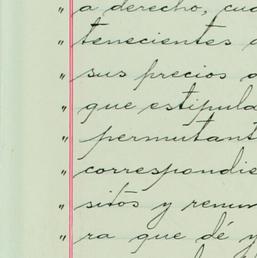 a derecho, cua
" tenecientes a
" sus precios a
" que estipula
" permutant
" correspondie
" sitos y renun
" ra que dé y